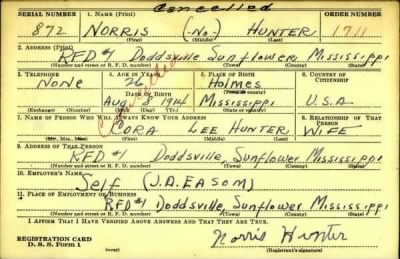 Cancelled
SERIAL NUMBER 1. NAME (Print) ORDER NUMBER
872 NORRIS (No) HUNTER 1711
(First) (Middle) (Last)
2. ADDRESS (Print)
RFD#1 Doddsville, Sunflower, Mississippi
(Number and street or R. F. D. number) (Town) (County) (State)
3. TELEPHONE 4. AGE IN YEARS 5. PLACE OF BIRTH 6. COUNTRY OF CITIZENSHIP
NONE 26 Holmes
DATE OF BIRTH (Town or county)
Aug 8 1914 Mississippi U.S.A
(Exchange) (Number) (Mo.) (Day) (Yr.) (State or country)
7. NAME OF PERSON WHO WILL ALWAYS KNOW YOUR ADDRESS 8. RELATIONSHIP OF THAT PERSON
CORA LEE HUNTER WIFE
(Mr., Mrs., Miss) (First) (Middle) (Last)
9. ADDRESS OF THAT PERSON
RFD#1 Doddsville, Sunflower Mississippi
(Number and street or R. F. D. number) (Town) (County) (State)
10. EMPLOYER'S NAME
Self (J.A. EASOM)
11. PLACE OF EMPLOYMENT OR BUSINESS
RFD#1 Doddsville, Sunflower Mississippi
(Number and street or R. F. D. number) (Town) (County) (State)
I AFFIRM THAT I HAVE VERIFIED ABOVE ANSWERS AND THAT THEY ARE TRUE.
REGISTRATION CARD
D. S. S. FORM 1
Norris Hunter
(Registrant's signature)